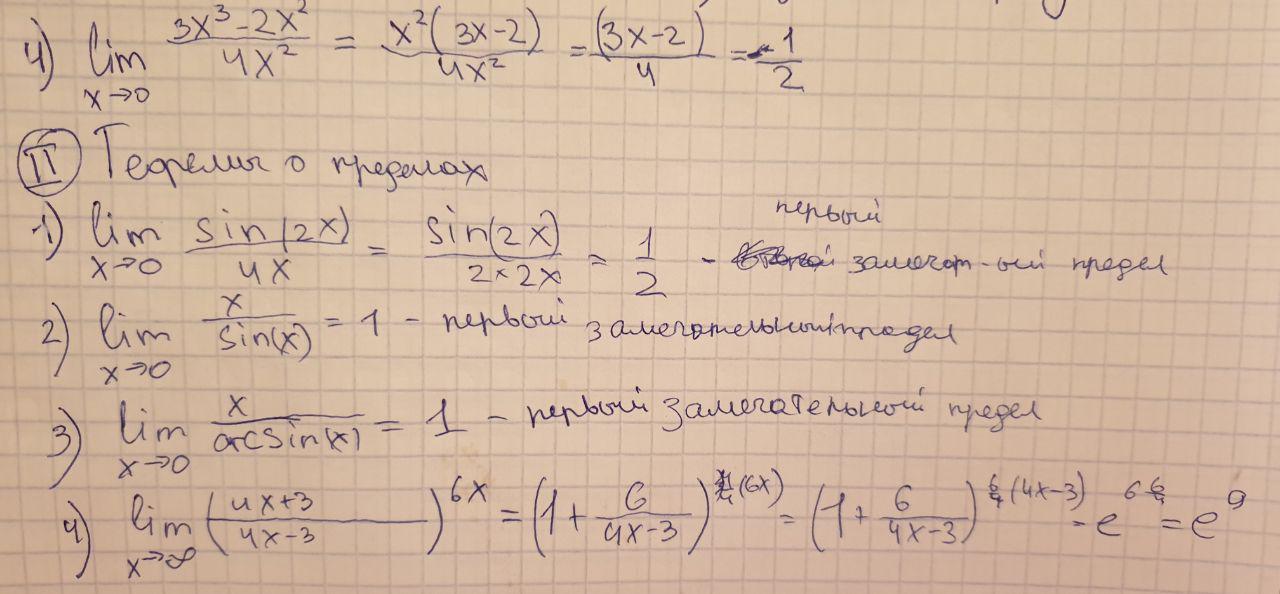 4) lim x→0 (3x³-2x²)/(4x²) = x²(3x-2)/(4x²) = (3x-2)/4 = -1/2
II Теоремы о пределах
1) lim x→0 sin(2x)/(4x) = sin(2x)/(2×2x) = 1/2 - первый замечат-ый предел
2) lim x→0 x/sin(x) = 1 - первый замечательный предел
3) lim x→0 x/arcsin(x) = 1 - первый замечательный предел
4) lim x→∞ ((4x+3)/(4x-3))^(6x) = (1+6/(4x-3))^((6x)) = (1+6/(4x-3))^(6/4(4x-3)) = e^(6 6/4) = e^9